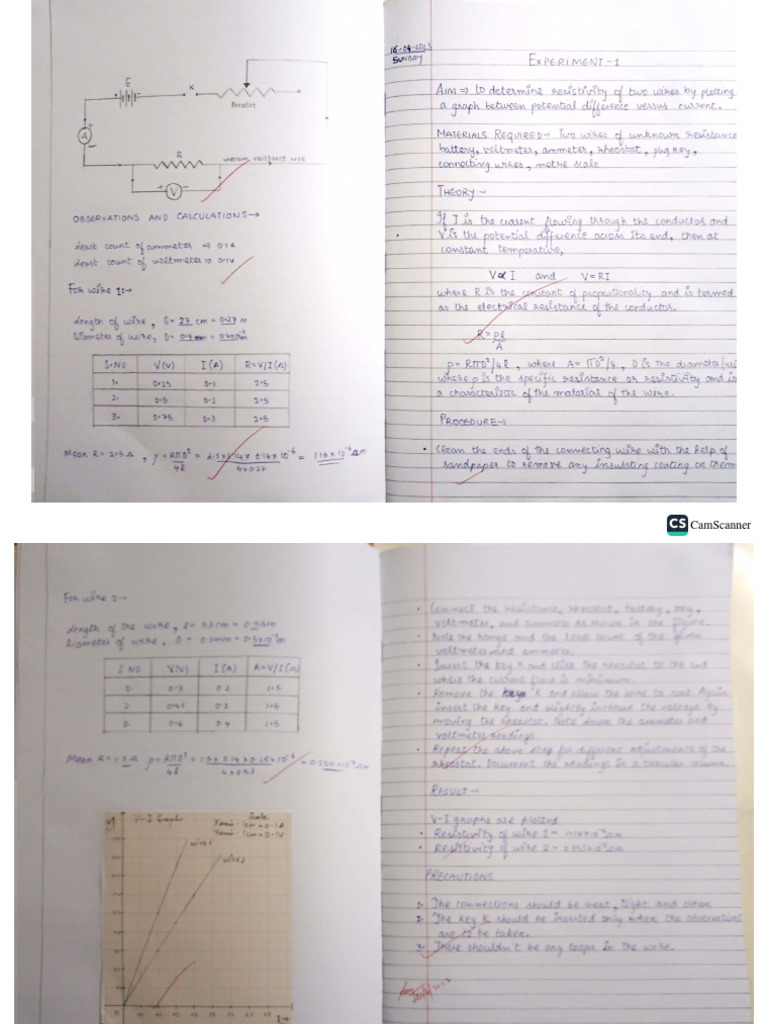 E
K
Rheostat
A
R
unknown resistance wire
V
OBSERVATIONS AND CALCULATIONS→
Least count of ammeter ⇒ 0.1A
Least count of voltmeter ⇒ 0.1V
For wire 1:→
Length of wire, l = 27 cm = 0.27 m
Diameter of wire, D =
S.NO V(V) I(A) R=V/I(Ω)
1. 0.25 0.1 2.5
2. 0.5 0.2 2.5
3. 0.75 0.3 2.5
Mean R = 2.5Ω, ρ = RΠD²/4l = 2.5×3.14×0.16×10⁻⁶/4×0.27 =
16-04-2023
SUNDAY
EXPERIMENT-1
AIM ⇒ to determine resistivity of two wires by plotting
a graph between potential difference versus current.
MATERIALS REQUIRED→ Two wires of unknown resistance
battery, voltmeter, ammeter, rheostat, plug key,
connecting wires, metre scale
THEORY→
If I is the current flowing through the conductor and
V is the potential difference across its end, then at
constant temperature,
V∝I and V=RI
where R is the constant of proportionality and is termed
as the electrical resistance of the conductor.
R = ρl/A
ρ = RΠD²/4l, where A = ΠD²/4, D is the diameter
where ρ is the specific resistance or resistivity and is
a characteristic of the material of the wire.
PROCEDURE→
• Clean the ends of the connecting wire with the help of
sandpaper to remove any insulating coating on them
CS CamScanner
For wire 2→
Length of the wire, l = 53cm = 0.53m
Diameter of wire, D =
S NO V(V) I(A) R=V/I(Ω)
1. 0.3 0.2 1.5
2. 0.45 0.3 1.5
3. 0.6 0.4 1.5
Mean R = 1.5Ω ρ = RΠD²/4l =
V-I Graph
Scale
X axis: 1cm = 0.1A
Y axis: 1cm = 0.1V
wire 1
wire 2
• Connect the resistance, rheostat, battery, key,
voltmeter, and ammeter as shown in the figure.
• Note the range and the least count of the given
voltmeter and ammeter.
• Insert the key K and slide the rheostat to the end
where the current flow is minimum.
• Remove the key K and allow the wire to cool. Again
insert the key and slightly increase the voltage by
moving the rheostat. Note down the ammeter and
voltmeter readings.
• Repeat the above step for different adjustments of the
rheostat. Document the readings in a tabular column.
RESULT→
V-I graphs are plotted
• Resistivity of wire 1 =
• Resistivity of wire 2 =
PRECAUTIONS
1. The connections should be neat, tight and clean
2. The key K should be inserted only when the observations
are to be taken.
3. There shouldn't be any loops in the wire.